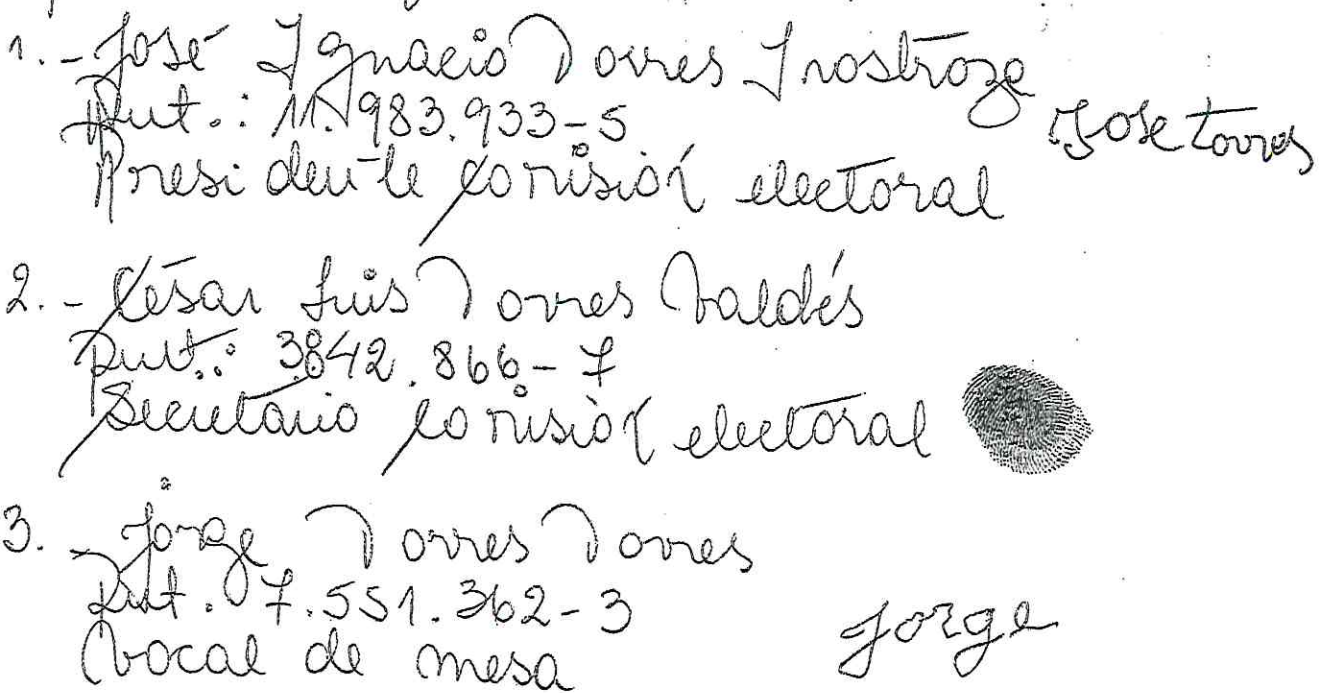 1.- José Ignacio Torres Inostroza
Rut.: 11.983.933-5
Jose Torres
Presidente comisión electoral
2.- César Luis Torres Valdés
Rut.: 3.842.866-7
Secretario comisión electoral
3.- Jorge Torres Torres
Rut. 7.551.362-3
Jorge
Vocal de mesa